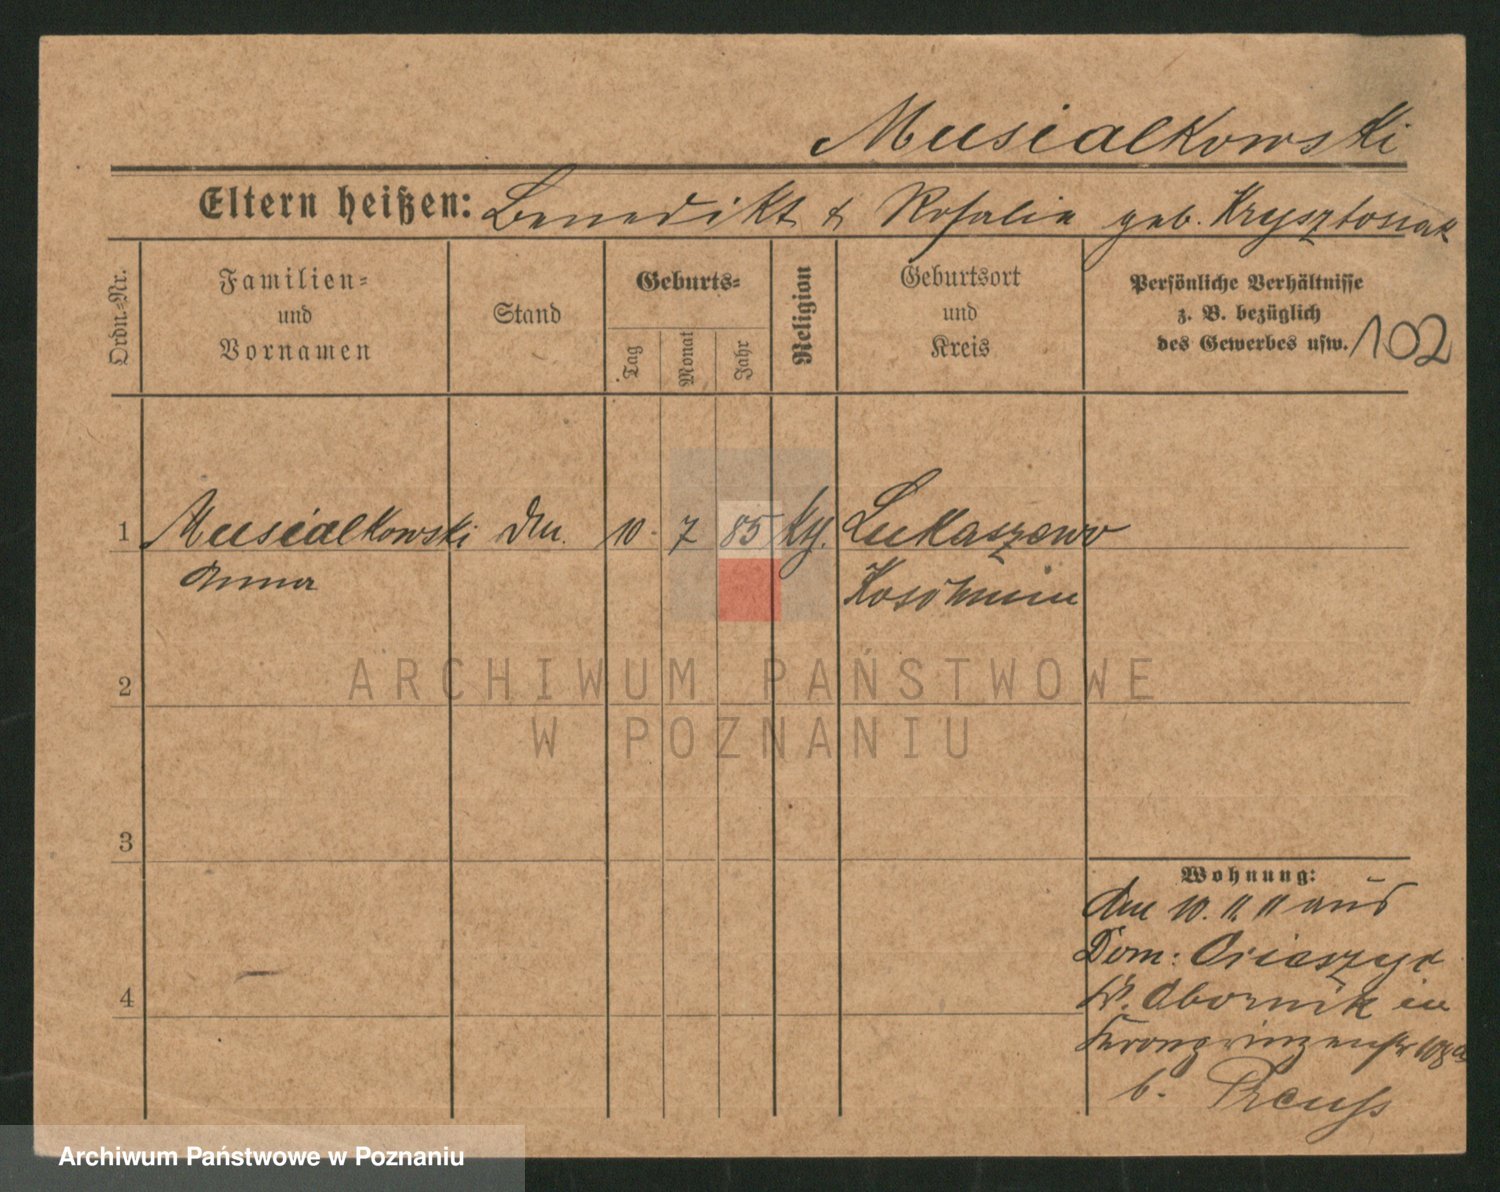 Musialkowski
Eltern heißen: Benedikt & Rosalie geb. Krysztosiak
Ordn.-Nr.
Familien-
und
Vornamen
Stand
Geburts-
Tag
Monat
Jahr
Religion
Geburtsort
und
Kreis
Persönliche Verhältnisse
z. B. bezüglich
des Gewerbes usw. 102
1 Musialkowski 10. 7 85 Lukaszewo
Anna Koschmin
2
ARCHIWUM PAŃSTWOWE
W POZNANIU
3
Wohnung:
10. 11. 11 aus
Dom:
4
Kr. Obornik in
Kronprinzenstr
b. Preuss
Archiwum Państwowe w Poznaniu